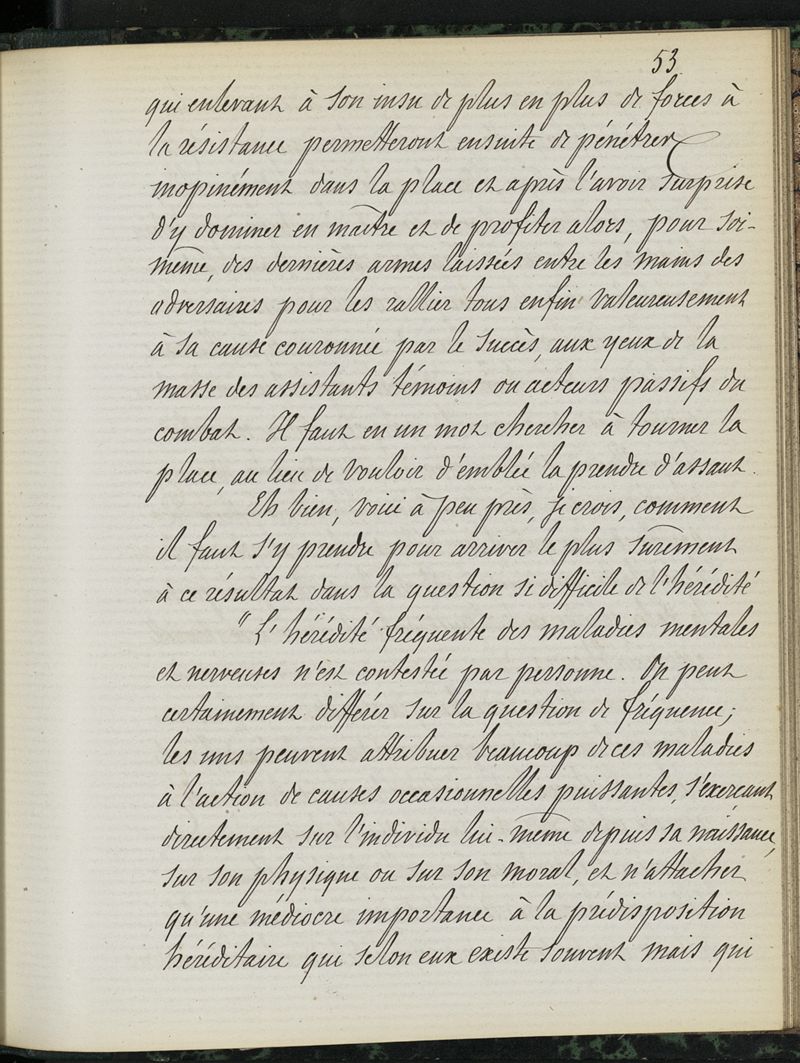 53
qui enlevant à son insu de plus en plus de forces à
la résistance permetteront ensuite de pénétrer
inopinément dans la place et après l'avoir surprise
d'y dominer en maître et de profiter alors, pour soi-
même, des dernières armes laissées entre les mains des
adversaires pour les rallier tous enfin valeureusement
à sa cause couronnée par le succès, aux yeux de la
masse des assistants témoins ou acteurs passifs du
combat. Il faut en un mot chercher à tourner la
place, au lieu de vouloir d'emblée la prendre d'assaut.
Eh bien, voici à peu près, je crois, comment
il faut s'y prendre pour arriver le plus sûrement
à ce résultat dans la question si difficile de l'hérédité
"L'hérédité fréquente des maladies mentales
et nerveuses n'est contestée par personne. On peut
certainement différer sur la question de fréquence;
les uns peuvent attribuer beaucoup de ces maladies
à l'action de causes occasionnelles puissantes, s'exerçant
directement sur l'individu lui-même depuis sa naissance,
sur son physique ou sur son moral, et n'attacher
qu'une médiocre importance à la prédisposition
héréditaire qui selon eux existe souvent mais qui